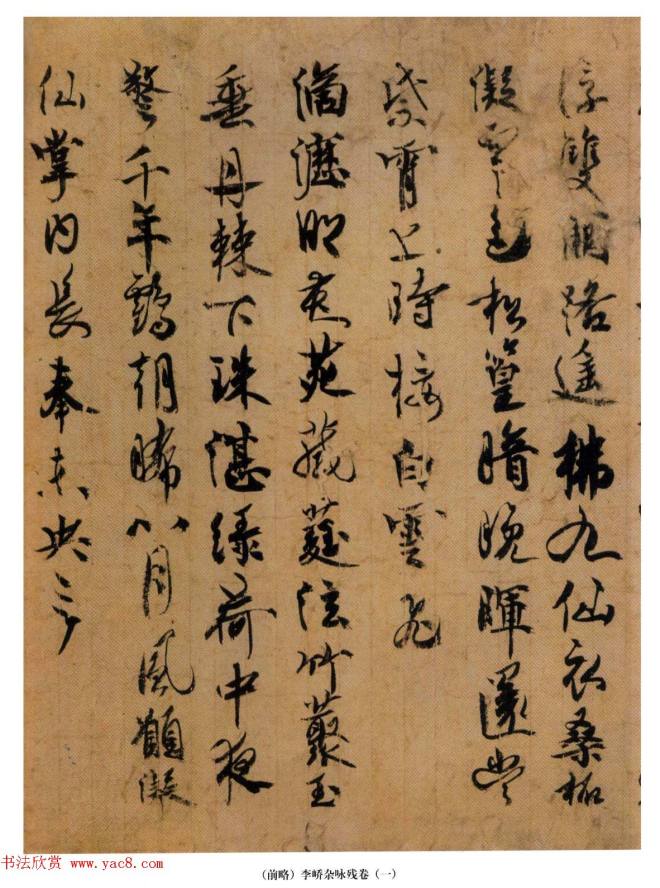 浮雙闕路遥拂九仙衣桑柘
凝寒色松篁暗晚暉還當
紫霄上時接白雲飛
滴瀝明花苑葳蕤泫竹叢玉
垂丹棘下珠湛緑荷中夜
警千年鶴朝晞八月風願凝
仙掌内長奉未央宫
书法欣赏 www.yac8.com
（前略）李峤杂咏残卷（一）